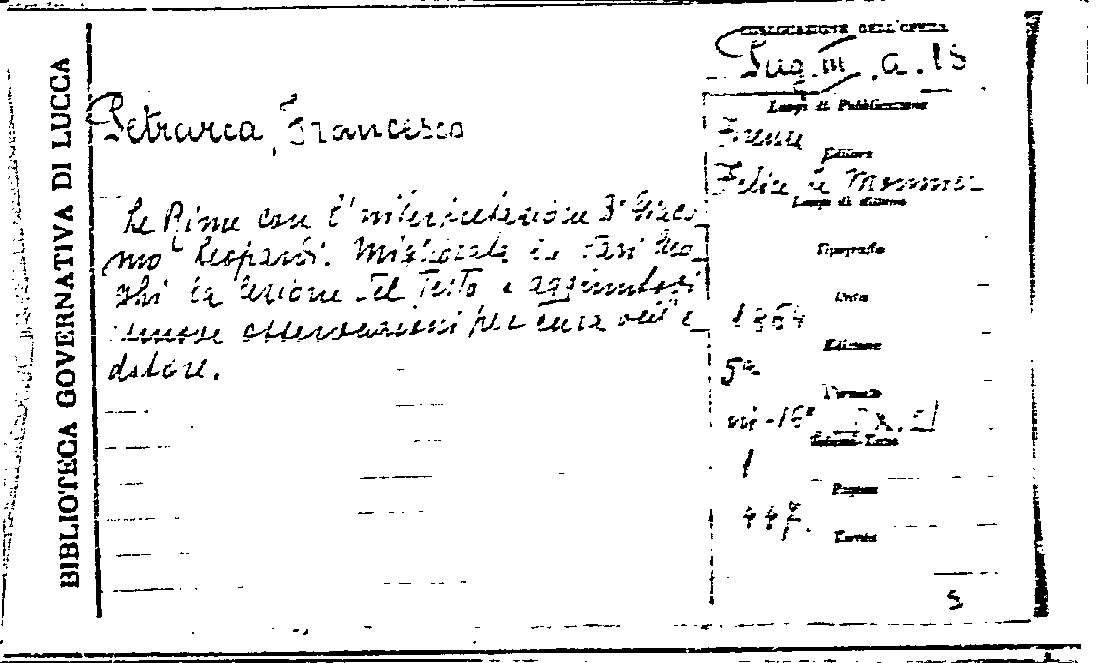 BIBLIOTECA GOVERNATIVA DI LUCCA
COLLOCAZIONE DELL'OPERA
Pug. III. a. 15
Petrarca, Francesco
Le Rime con l'interpretazione di Giaco-
mo Leopardi. Migliorata in vari luo-
ghi la lezione del testo e aggiuntovi
nuove osservazioni per cura dell'e-
ditore.
Luogo di Pubblicazione
Firenze
Editore
Felice Le Monnier
Luogo di stampa
Tipografia
Data
1864
Edizione
5a
Formato
in-16°
Volumi-Tomo
1
Pagine
447.
Tavole
S